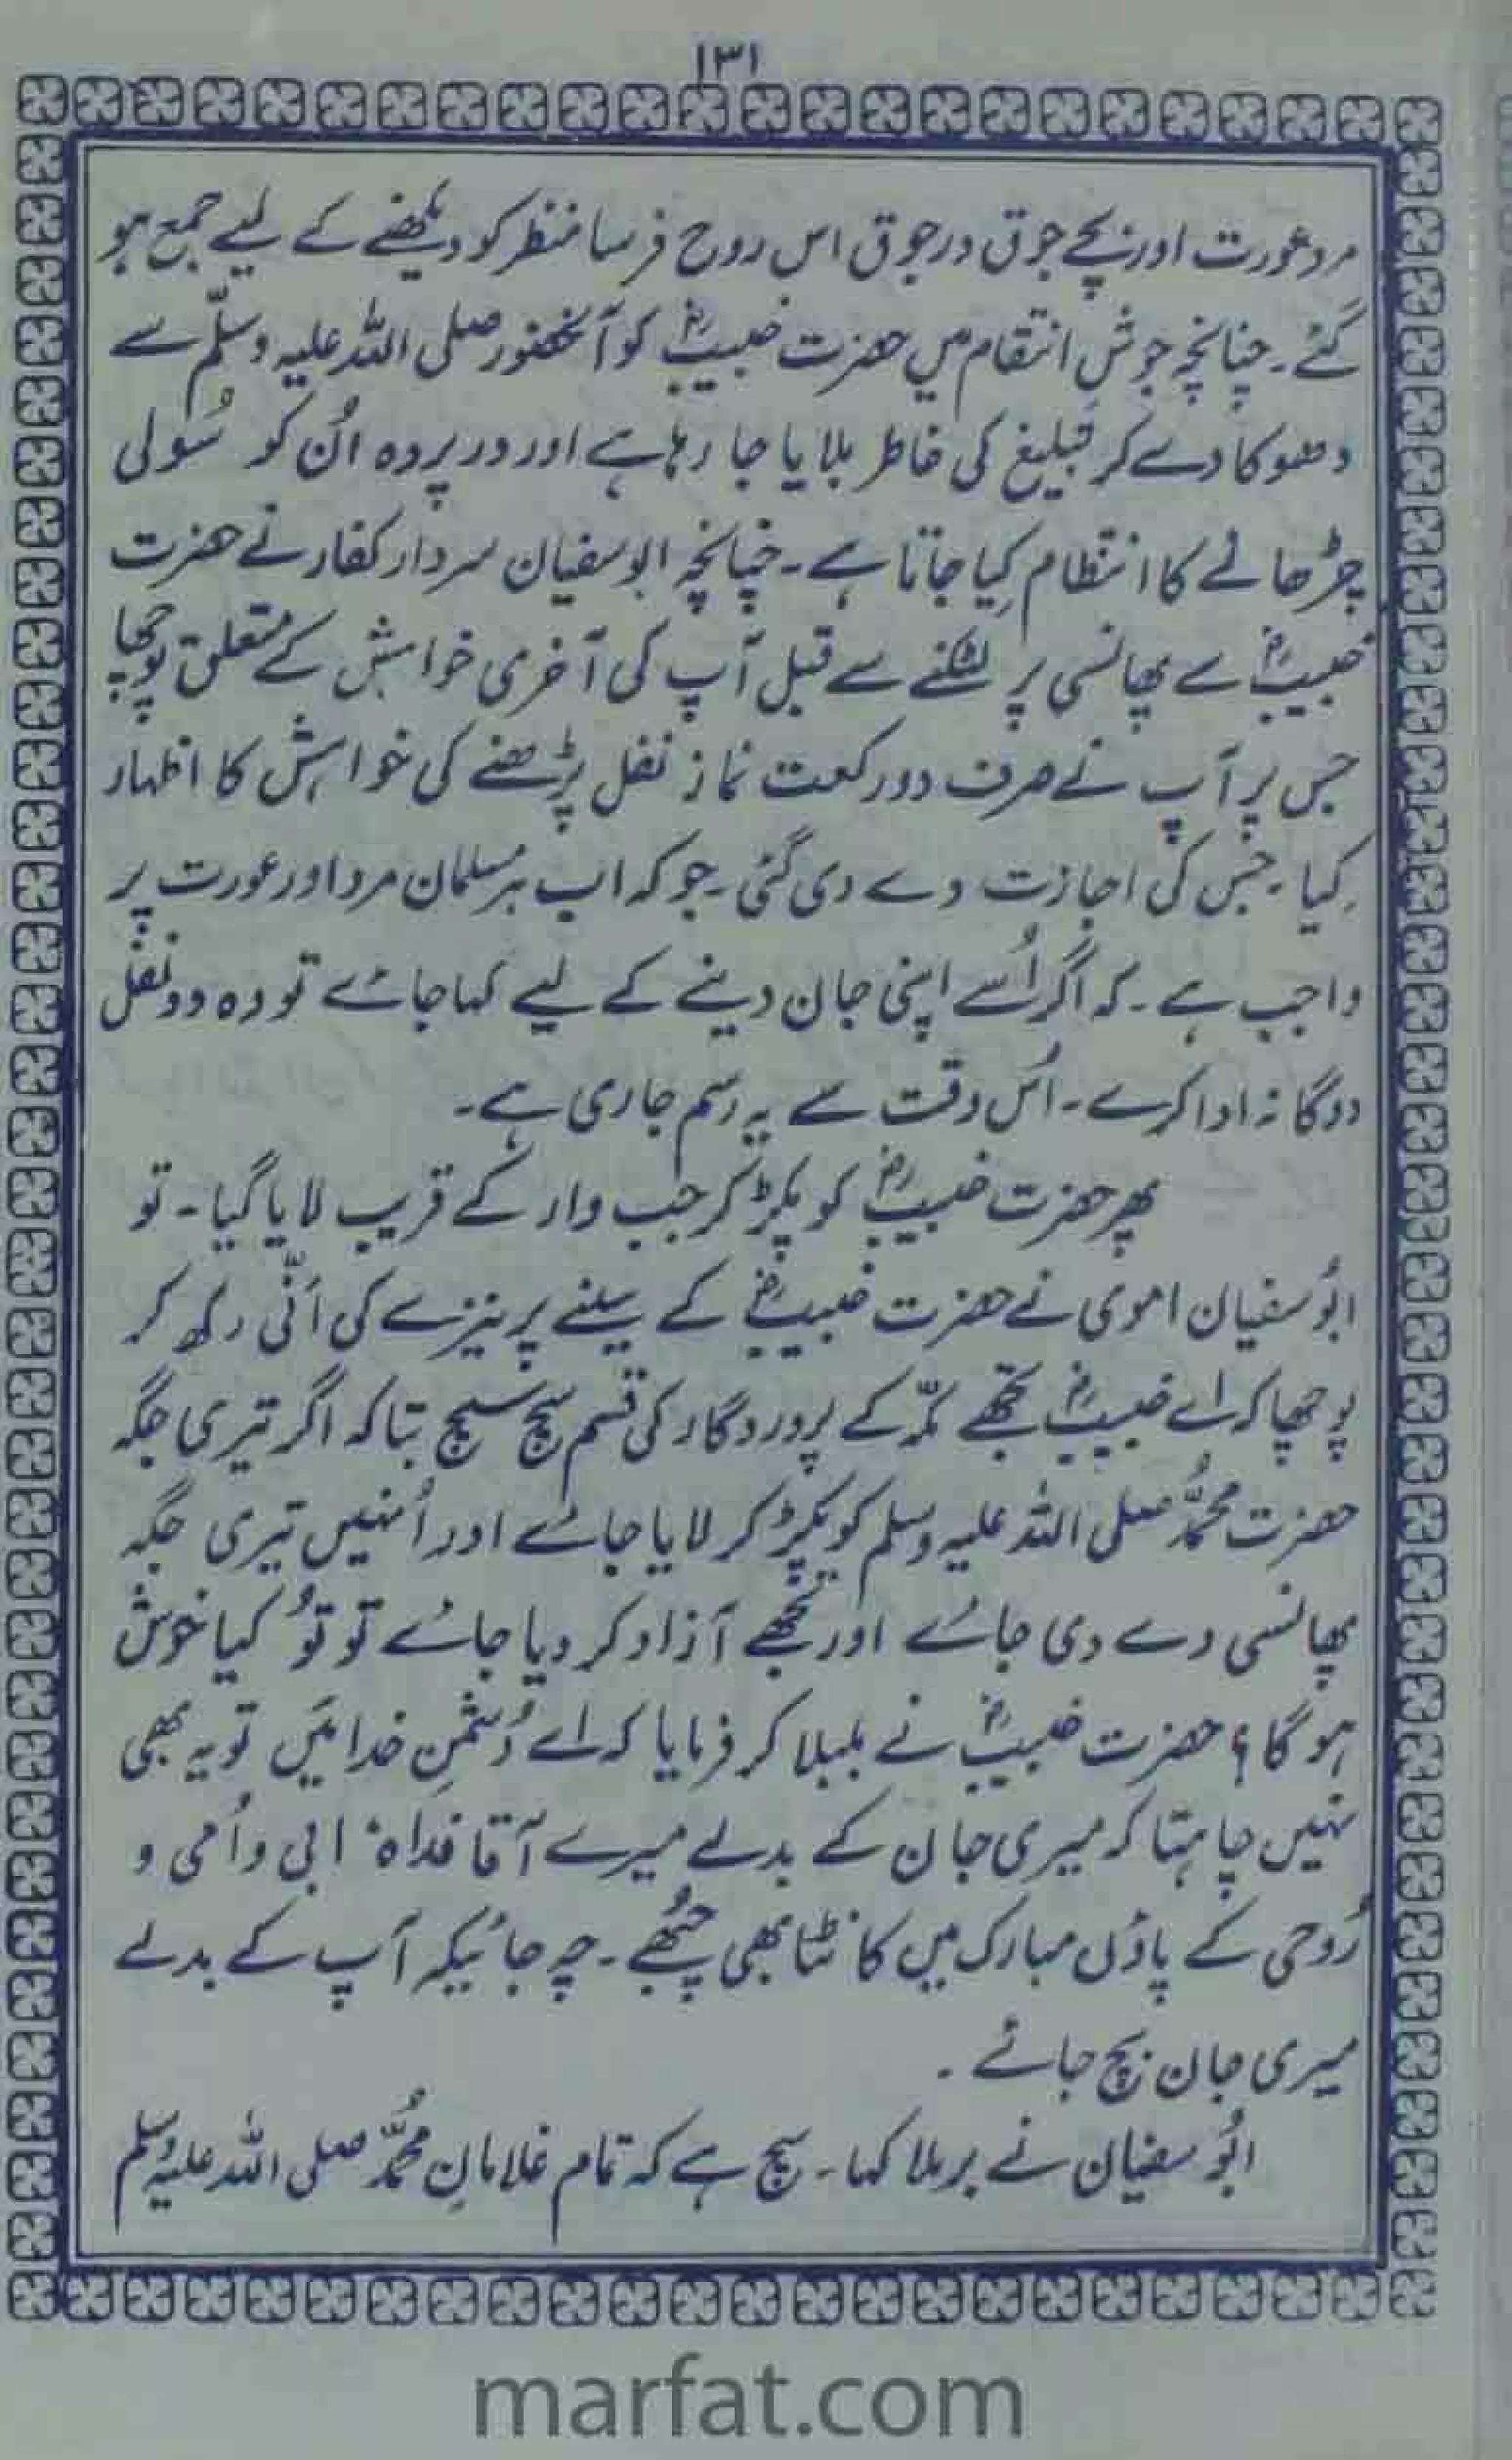 ۱۳۱
مرد عورت اور بچے جوق در جوق اس روح فرسا منظر کو دیکھنے کے لیے جمع ہو
گئے۔ چنانچہ جوشِ انتقام میں حضرت خبیبؓ کو آنحضور صلی اللہ علیہ وسلّم سے
دھوکا دے کر تبلیغ کی خاطر بلایا جا رہا ہے اور در پردہ اُن کو سُولی
چڑھانے کا انتظام کِیا جاتا ہے۔ چنانچہ ابوسفیان سردار کفار نے حضرت
خبیبؓ سے پھانسی پر لٹکنے سے قبل آپ کی آخری خواہش کے متعلق پوچھا
جس پر آپ نے صرف دو رکعت نماز نفل پڑھنے کی خواہش کا اظہار
کِیا۔ جس کی اجازت دے دی گئی۔ جو کہ اب ہر مسلمان مرد اور عورت پر
واجب ہے۔ کہ اگر اُسے اپنی جان دینے کے لیے کہا جائے تو وہ دو نفل
دوگانہ ادا کرے۔ اُس وقت سے یہ رسم جاری ہے۔
پھر حضرت خبیبؓ کو پکڑ کر جب دار کے قریب لایا گیا۔ تو
ابُوسفیان اموی نے حضرت خبیبؓ کے سینے پر نیزے کی اَنّی رکھ کر
پوچھا کہ اے خبیبؓ تجھے مکّہ کے پروردگار کی قسم سچ سچ بتا کہ اگر تیری جگہ
حضرت محمدؐ صلی اللہ علیہ وسلم کو پکڑ کر لایا جائے اور اُنہیں تیری جگہ
پھانسی دے دی جائے اور تجھے آزاد کر دیا جائے تو تُو کیا خوش
ہو گا؟ حضرت خبیبؓ نے بلبلا کر فرمایا کہ اے دُشمنِ خدا مَیں تو یہ بھی
نہیں چاہتا کہ میری جان کے بدلے میرے آقا فداہٗ ابی واُمی و
رُوحی کے پاؤں مبارک میں کانٹا بھی چُبھے۔ چہ جائیکہ آپ کے بدلے
میری جان بچ جائے۔
ابُوسفیان نے برملا کہا۔ سچ ہے کہ تمام غلامانِ محمدؐ صلی اللہ علیہ وسلم
marfat.com